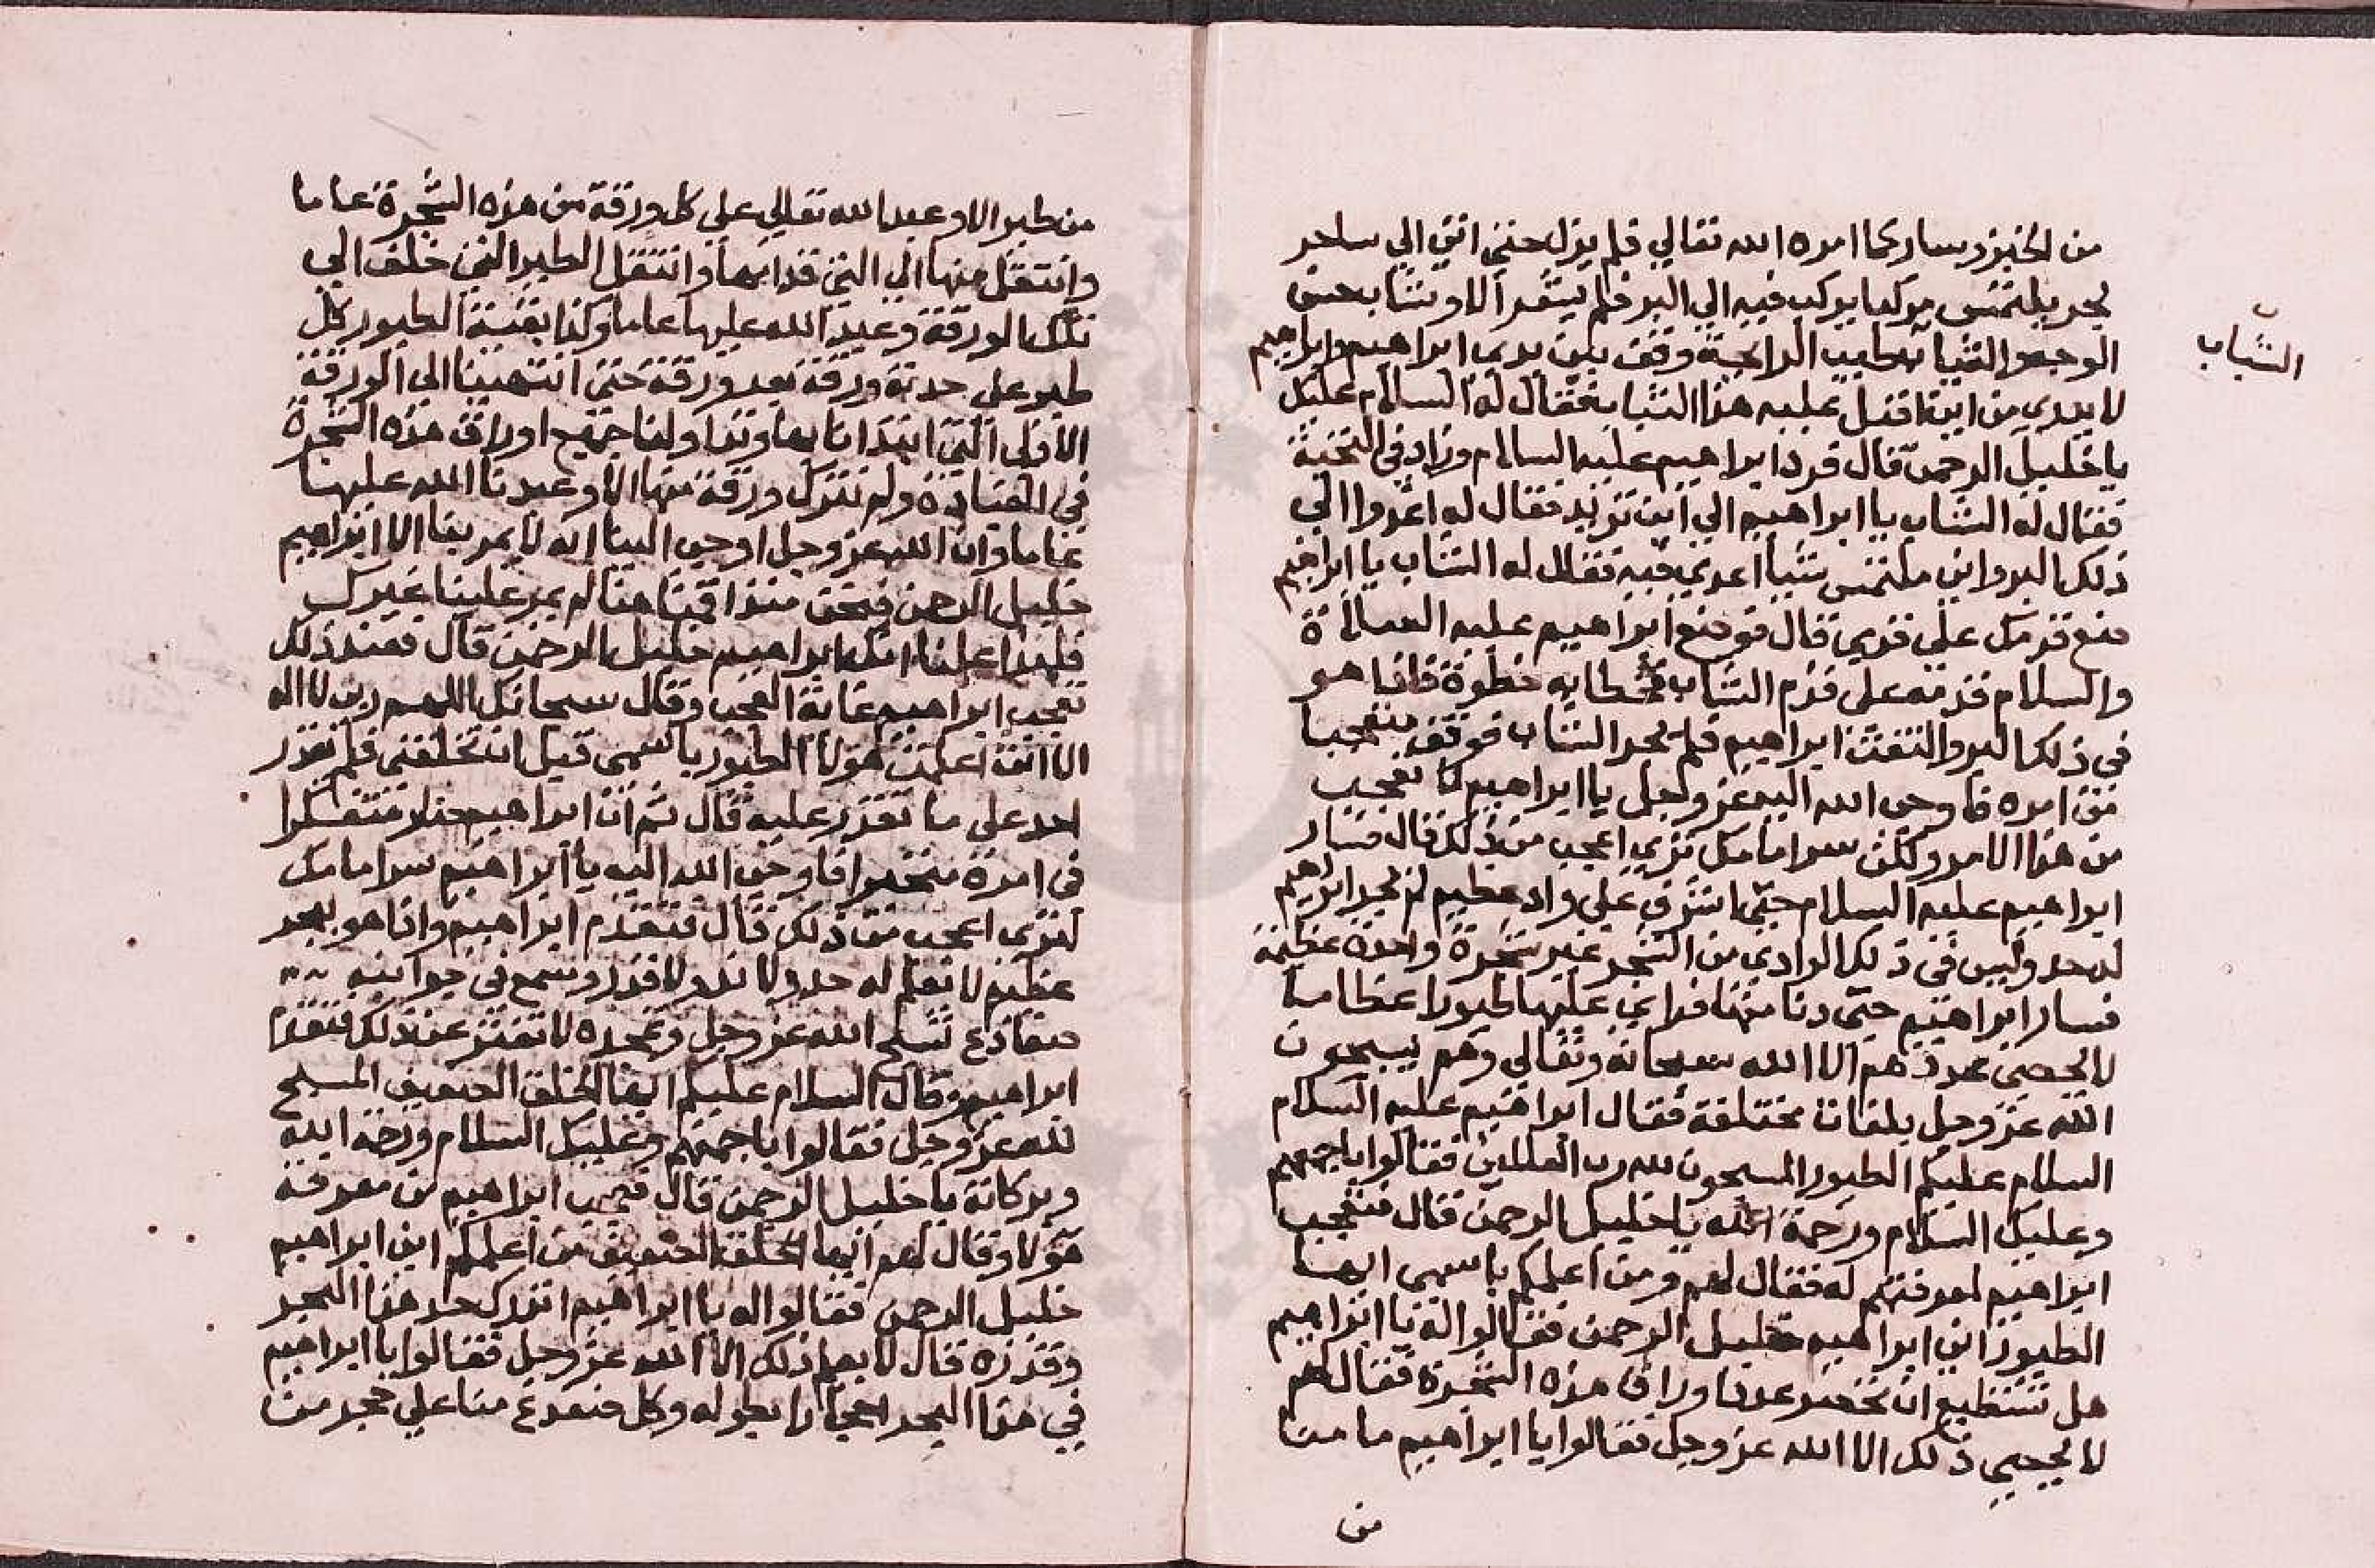 من الخبز وسار كما امره الله تعالي فلم يزل حتي اتي الي ساحل
بحر يلتمس مركبا يركب فيه الي البر فلم يشعر الا وشاب حسن
الوجه والثياب طيب الرايحة وقف بين يدي ابراهيم وابراهيم
لا يدري من اين اقبل عليه هذا الشاب فقال له السلام عليك
يا خليل الرحمن قال فرد ابراهيم عليه السلام وزاد في التحية
فقال له الشاب يا ابراهيم الي اين تريد فقال له اعدوا الي
ذلك البر واني ملتمس شيا اعدي فيه فقال له الشاب يا ابراهيم
ضع قدمك علي قدمي قال فوضع ابراهيم عليه الصلاة
والسلام قدمه علي قدم الشاب فخطا به خطوة فاذا هو
في ذلك البر والتفت ابراهيم فلم يجد الشاب فوقف يتعجبا
من امره فاوحي الله اليه عز وجل يا ابراهيم لا تعجب
من هذا الامر ولكن سر امامك تري اعجب من ذلك قال فسار
ابراهيم عليه السلام حتي اشرف علي واد عظيم لم يجد ابراهيم
له حد وليس في ذلك الوادي من الشجر غير شجرة واحدة عظيمة
فسار ابراهيم حتي دنا منها فراي عليها طيورا عظاما
لا يحصي عددهم الا الله سبحانه وتعالي وهم يسبحون
الله عز وجل بلغات مختلفة فقال ابراهيم عليه السلام
السلام عليكم الطيور المسبحون لله رب العالمين فقالوا باجمعهم
وعليك السلام ورحمة الله يا خليل الرحمن قال فتعجب
ابراهيم لمعرفتهم له فقال لهم ومن اعلمكم باسمي ايها
الطيور اني ابراهيم خليل الرحمن فقالوا له يا ابراهيم
هل تستطيع ان تخصر عدد اوراق هذه الشجرة فقال لهم
لا يحصي ذلك الا الله عز وجل فقالوا يا ابراهيم ما منا
من
الشاب
من طير الا وعبد الله تعالي علي كل ورقة من هذه الشجرة عاما
وانتقل منها الي التي قدامها وانتقل الطير الذي خلف الي
تلك الورقة وعبد الله عليها عاما وكذا بقية الطيور كل
طير علي حدته ورقة بعد ورقة حتي انتهينا الي الورقة
الاولي التي ابتدانا بها وتداولنا جميع اوراق هذه الشجرة
في العبادة ولم نترك ورقة منها الا وعبدنا الله عليها
عاما وان الله عز وجل اوحي الينا انه لا يمر بنا الا ابراهيم
خليل الرحمن فنحن منذ اقمنا هنا لم يمر علينا غيرك
فلهذا علمنا انك ابراهيم خليل الرحمن قال فعند ذلك
تعجب ابراهيم غاية العجب وقال سبحانك اللهم رب لا اله
الا انت اعلمت هولا الطيور باسمي قبل ان تخلقني فلم يقدر
احد علي ما تقدر عليه قال ثم ان ابراهيم متفكرا
في امره متحيرا فاوحي الله اليه يا ابراهيم سر امامك
لتري اعجب من ذلك قال فتقدم ابراهيم واذا هو ببحر
عظيم لا يعلم له حد ولا قدر وسمع في جوانبه
ضفادع تسبح الله عز وجل وتمجده لا تفتر عن ذلك فتقدم
ابراهيم وقال السلام عليكم ايها الخلق الضعيف المسبح
لله عز وجل فقالوا باجمعهم وعليك السلام ورحمة الله
وبركاته يا خليل الرحمن قال فتعجب ابراهيم من معرفة
هولا وقال لهم ايها الخلق الضعيف من اعلمكم اني ابراهيم
خليل الرحمن فقالوا له يا ابراهيم اتدرك حد هذا البحر
وقدره قال لا يعلم ذلك الا الله عز وجل فقالوا يا ابراهيم
في هذا البحر احجارا بطوله وكل ضفدع منا علي حجر من